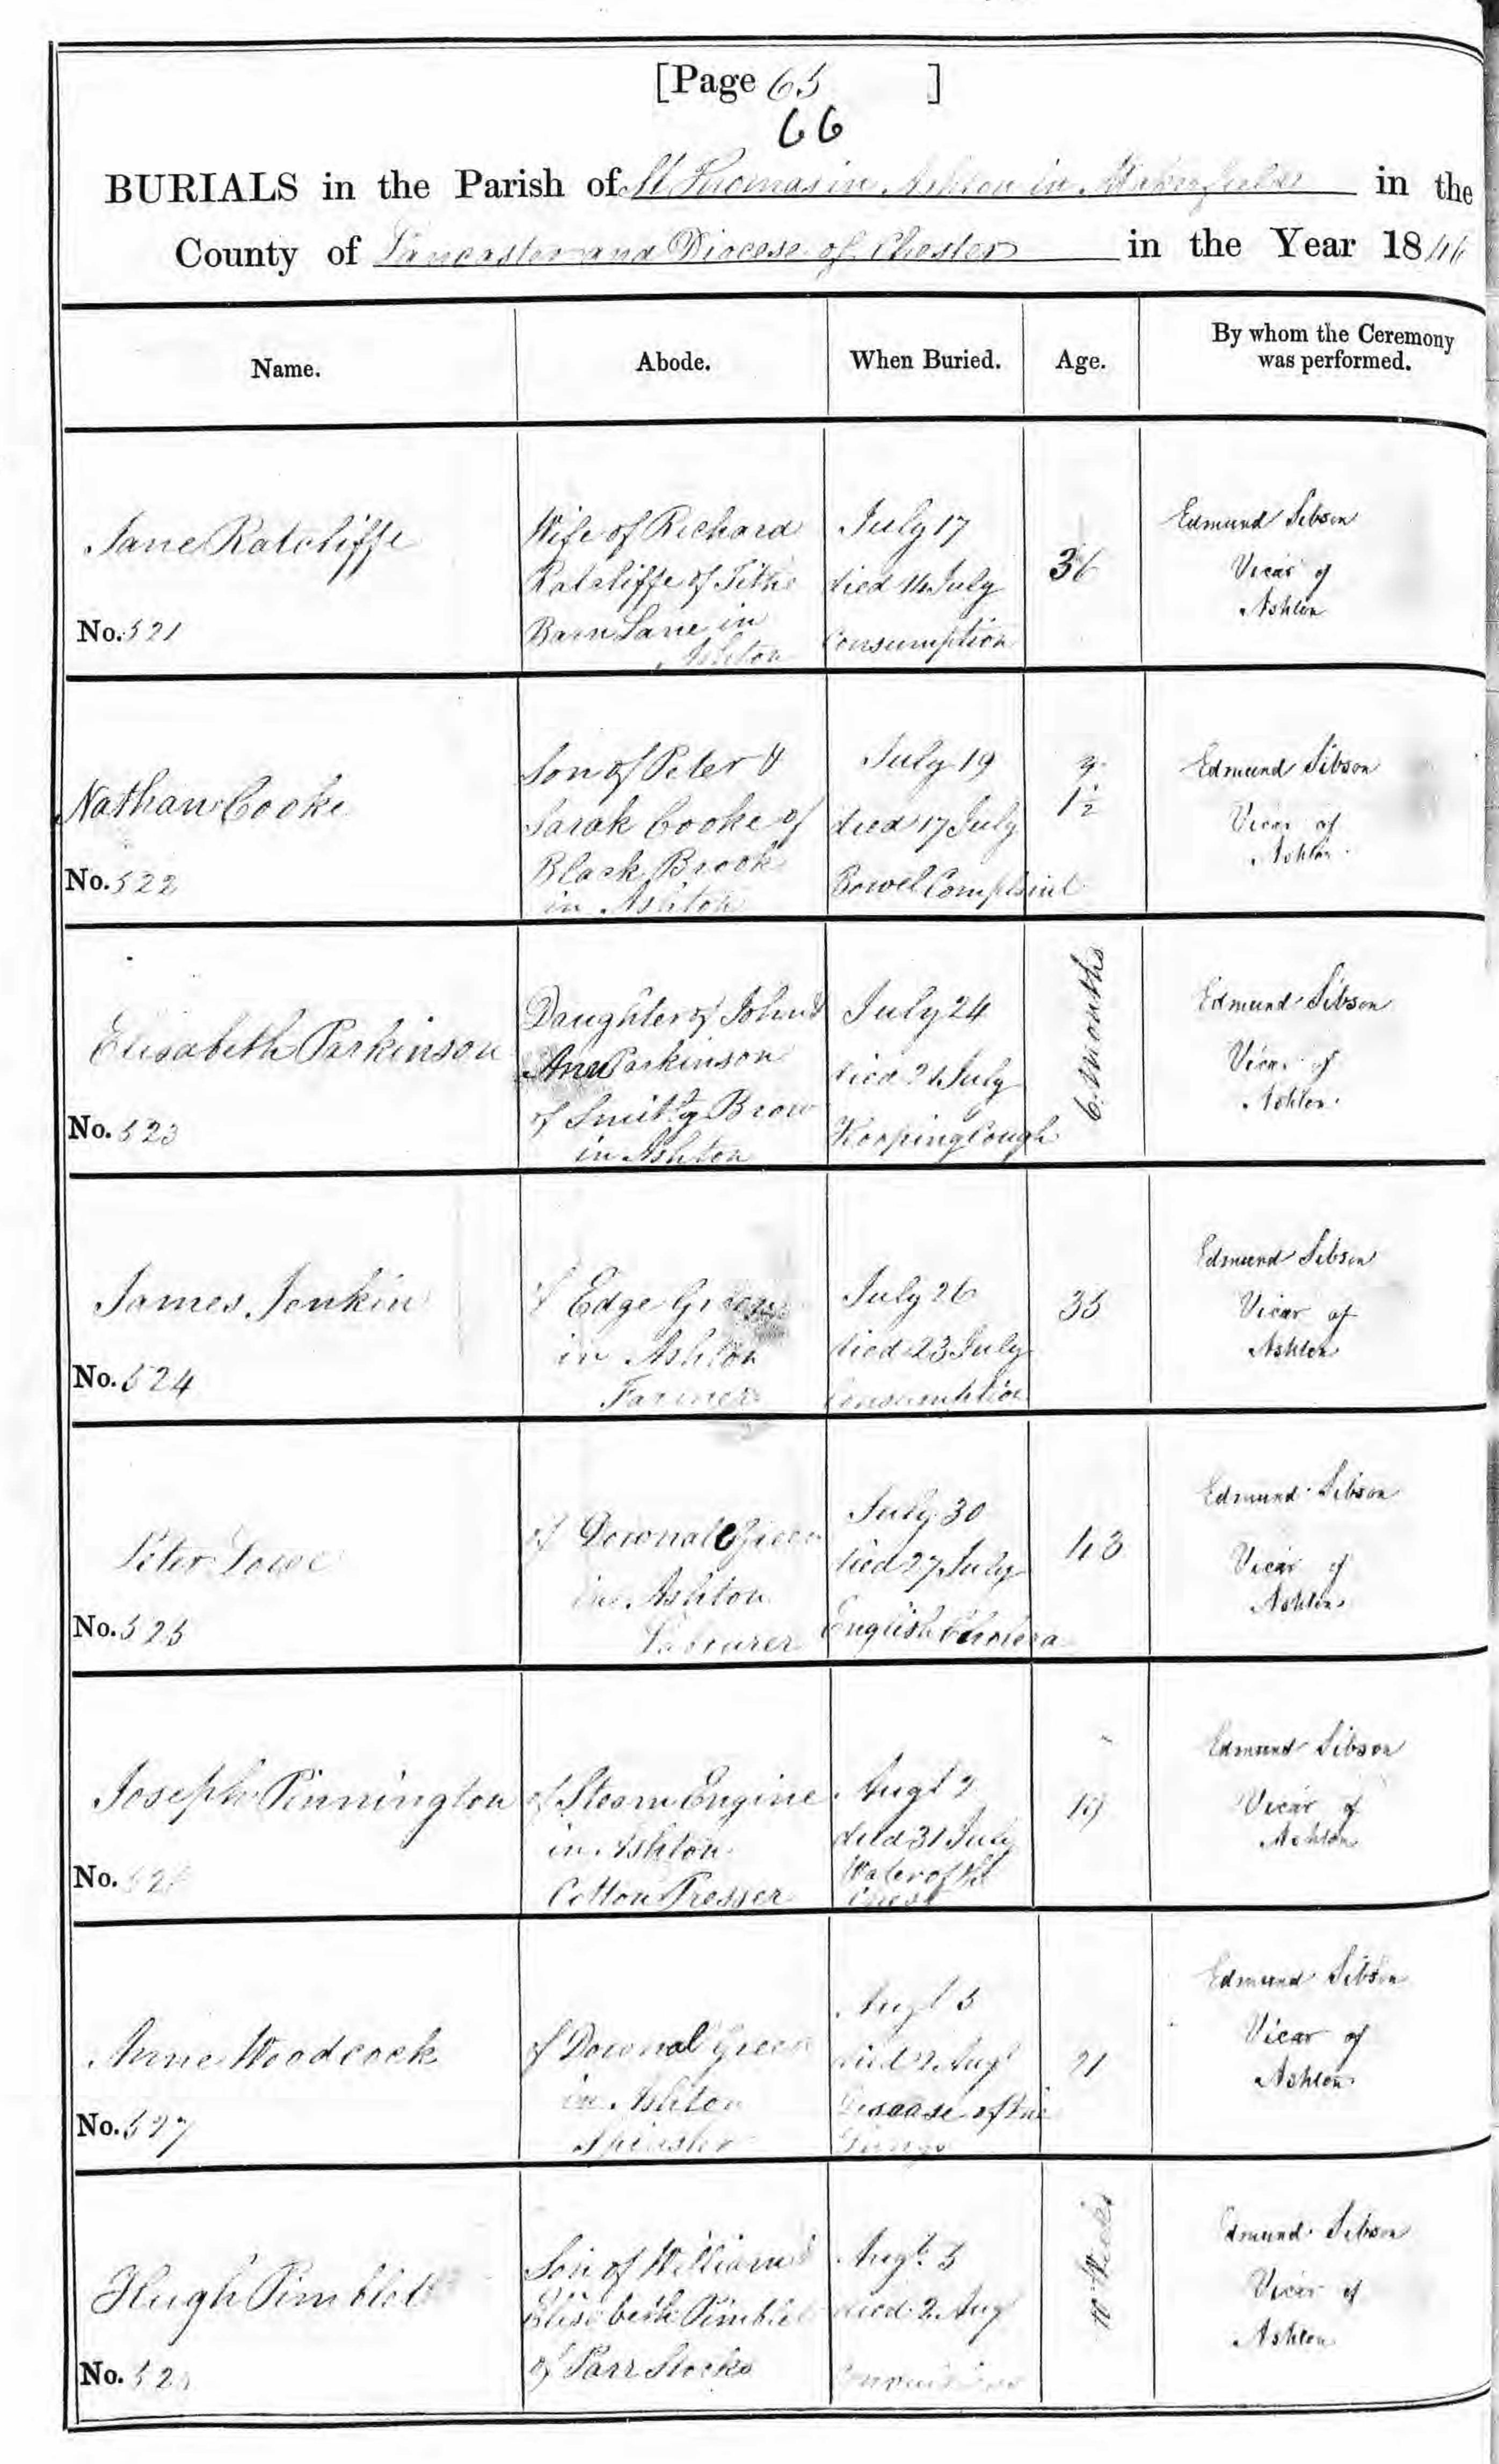 [Page 65 ]
66
BURIALS in the Parish of St Thomas in Ashton in Makerfield in the
County of Lancaster and Diocese of Chester in the Year 1846
Name. Abode. When Buried. Age. By whom the Ceremony was performed.
Jane Ratcliffe
No. 521
Wife of Richard
Ratcliffe of Tithe
Barn Lane in
Ashton
July 17
died 14 July
Consumption
36
Edmund Sibson
Vicar of
Ashton
Nathan Cooke
No. 522
Son of Peter &
Sarah Cooke of
Black Brook
in Ashton
July 19
died 17 July
Bowel Complaint
1½
Edmund Sibson
Vicar of
Ashton
Elisabeth Parkinson
No. 523
Daughter of John &
Ann Parkinson
of Smithy Brow
in Ashton
July 24
died 21 July
Hooping Cough
6 Months
Edmund Sibson
Vicar of
Ashton
James Jenkin
No. 524
of Edge Green
in Ashton
Farmer
July 26
died 23 July
Consumption
35
Edmund Sibson
Vicar of
Ashton
Peter Lowe
No. 525
of Downall Green
in Ashton
Labourer
July 30
died 27 July
English Cholera
43
Edmund Sibson
Vicar of
Ashton
Joseph Pinnington
No. 526
of Steam Engine
in Ashton
Cotton Presser
Augt 2
died 31 July
Water of the
Chest
Edmund Sibson
Vicar of
Ashton
Anne Woodcock
No. 527
of Downall Green
in Ashton
Spinster
Augt 5
died 2 Augt
Disease of the
Lungs
21
Edmund Sibson
Vicar of
Ashton
Hugh Pimblett
No. 528
Son of William &
Elisabeth Pimblet
of Parr Stocks
Augt 5
died 2 Augt
Convulsions
10 Weeks
Edmund Sibson
Vicar of
Ashton